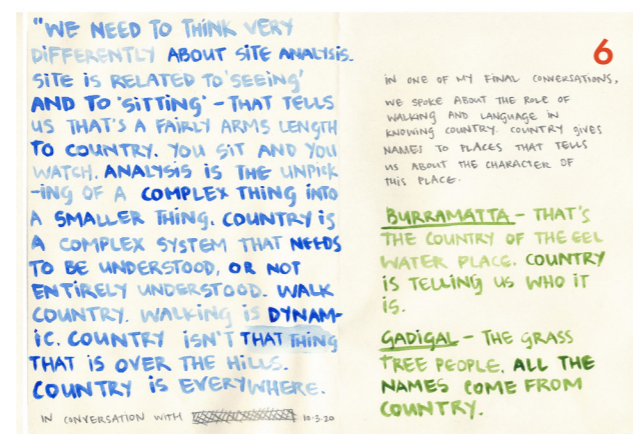 "WE NEED TO THINK VERY
DIFFERENTLY ABOUT SITE ANALYSIS.
SITE IS RELATED TO 'SEEING'
AND TO 'SITTING' - THAT TELLS
US THAT'S A FAIRLY ARMS LENGTH
TO COUNTRY. YOU SIT AND YOU
WATCH. ANALYSIS IS THE UNPICK
-ING OF A COMPLEX THING INTO
A SMALLER THING. COUNTRY IS
A COMPLEX SYSTEM THAT NEEDS
TO BE UNDERSTOOD, OR NOT
ENTIRELY UNDERSTOOD. WALK
COUNTRY. WALKING IS DYNAM-
IC. COUNTRY ISN'T THAT THING
THAT IS OVER THE HILLS.
COUNTRY IS EVERYWHERE.
IN CONVERSATION WITH 10.3.20
6
IN ONE OF MY FINAL CONVERSATIONS,
WE SPOKE ABOUT THE ROLE OF
WALKING AND LANGUAGE IN
KNOWING COUNTRY. COUNTRY GIVES
NAMES TO PLACES THAT TELLS
US ABOUT THE CHARACTER OF
THIS PLACE.
BURRAMATTA - THAT'S
THE COUNTRY OF THE EEL
WATER PLACE. COUNTRY
IS TELLING US WHO IT
IS.
GADIGAL - THE GRASS
TREE PEOPLE. ALL THE
NAMES COME FROM
COUNTRY.